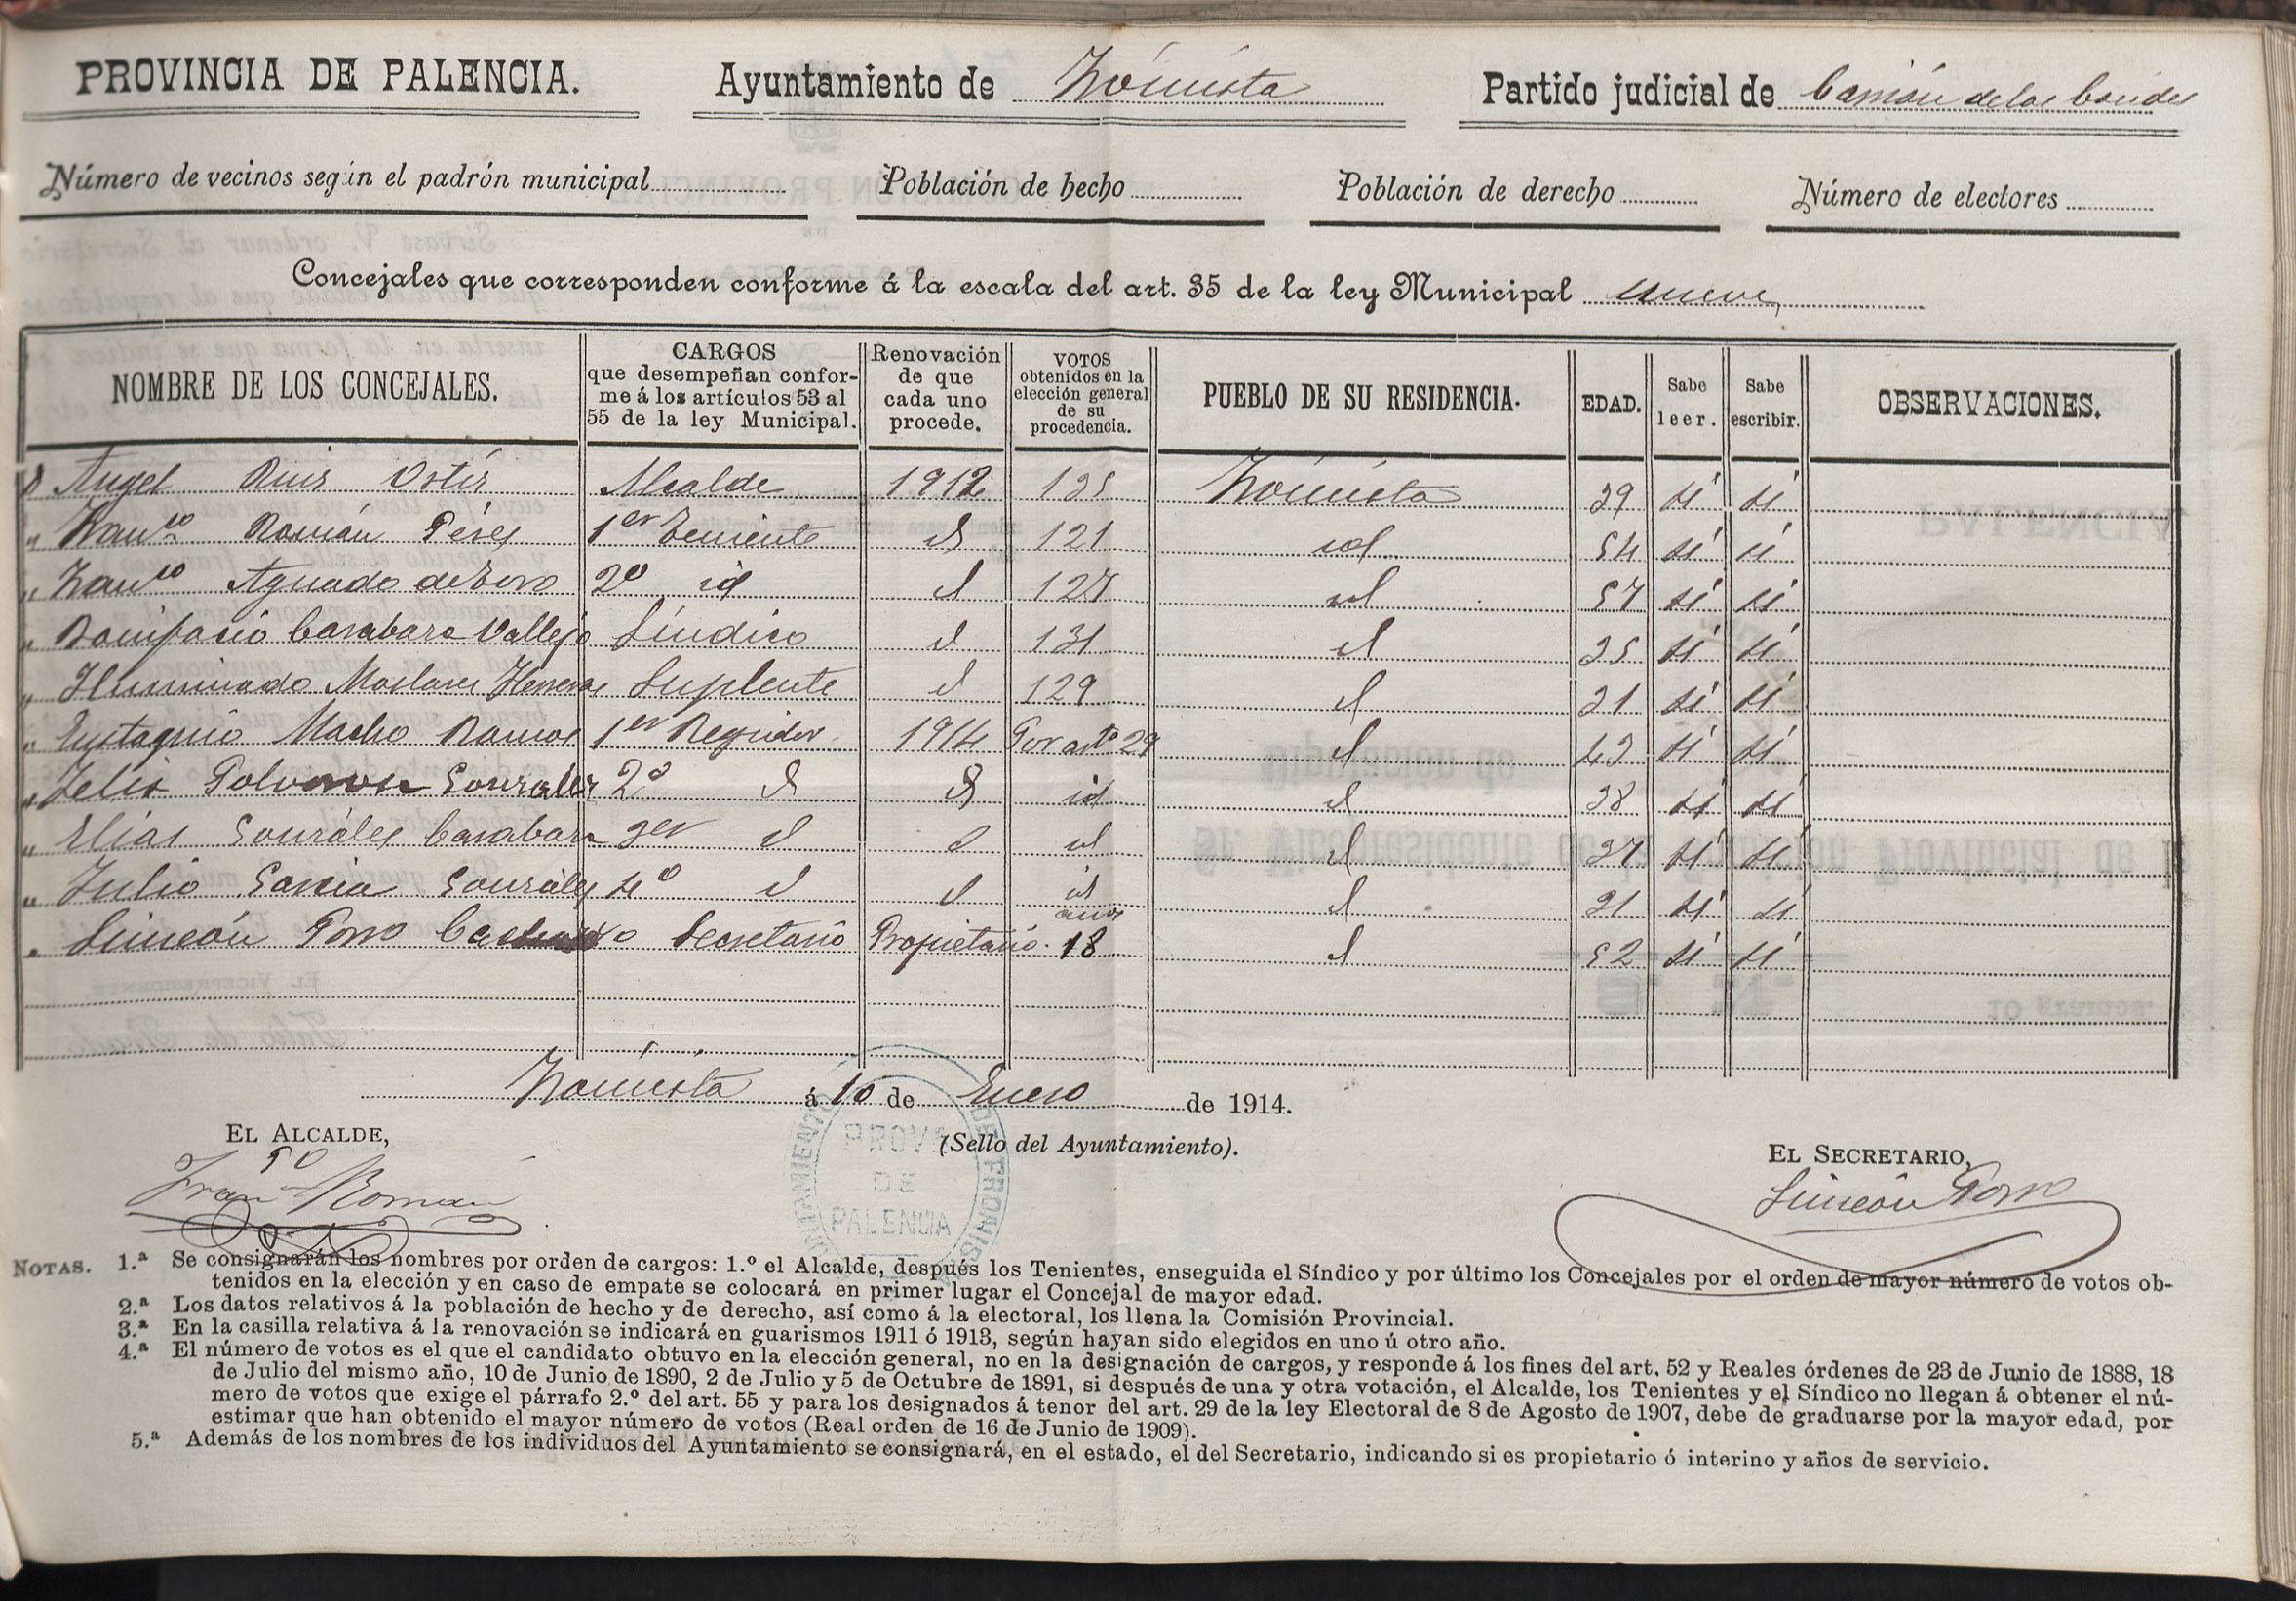 PROVINCIA DE PALENCIA. Ayuntamiento de Frómista Partido judicial de Carrión de los Condes
Número de vecinos según el padrón municipal Población de hecho Población de derecho Número de electores
Concejales que corresponden conforme á la escala del art. 35 de la ley Municipal nueve
NOMBRE DE LOS CONCEJALES. CARGOS que desempeñan conforme á los artículos 53 al 55 de la ley Municipal. Renovación de que cada uno procede. VOTOS obtenidos en la elección general de su procedencia. PUEBLO DE SU RESIDENCIA. EDAD. Sabe leer. Sabe escribir. OBSERVACIONES.
Angel Ruiz Alcalde 1912 Frómista 39 sí sí
" Franco Román Pérez 1er Teniente id 121 id 54 sí sí
" Franco Aguado de Toro 2º id id 127 id 57 sí sí
" Bonifacio Carabaza Vallejo Síndico id 131 id 35 sí sí
" Iluminado Herreros Suplente id 129 id 31 sí sí
" Eustaquio Macho Ramos 1er Regidor 1914 Por arto 29 id 43 sí sí
" Felix González 2º id id id id 38 sí sí
" Elías González Carabaza 3er id id id id 37 sí sí
" Julio García González 4º id id id id 31 sí sí
" Simeón Porro Secretario Propietario. 18 años id 52 sí sí
Frómista á 10 de Enero de 1914.
EL ALCALDE, (Sello del Ayuntamiento). EL SECRETARIO,
Franco Roman Simeón Porro
AYUNTAMIENTO DE FROMISTA PROVA DE PALENCIA
NOTAS. 1.ª Se consignarán los nombres por orden de cargos: 1.º el Alcalde, después los Tenientes, enseguida el Síndico y por último los Concejales por el orden de mayor número de votos ob-
tenidos en la elección y en caso de empate se colocará en primer lugar el Concejal de mayor edad.
2.ª Los datos relativos á la población de hecho y de derecho, así como á la electoral, los llena la Comisión Provincial.
3.ª En la casilla relativa á la renovación se indicará en guarismos 1911 ó 1913, según hayan sido elegidos en uno ú otro año.
4.ª El número de votos es el que el candidato obtuvo en la elección general, no en la designación de cargos, y responde á los fines del art. 52 y Reales órdenes de 23 de Junio de 1888, 18
de Julio del mismo año, 10 de Junio de 1890, 2 de Julio y 5 de Octubre de 1891, si después de una y otra votación, el Alcalde, los Tenientes y el Síndico no llegan á obtener el nú-
mero de votos que exige el párrafo 2.º del art. 55 y para los designados á tenor del art. 29 de la ley Electoral de 8 de Agosto de 1907, debe de graduarse por la mayor edad, por
estimar que han obtenido el mayor número de votos (Real orden de 16 de Junio de 1909).
5.ª Además de los nombres de los individuos del Ayuntamiento se consignará, en el estado, el del Secretario, indicando si es propietario ó interino y años de servicio.